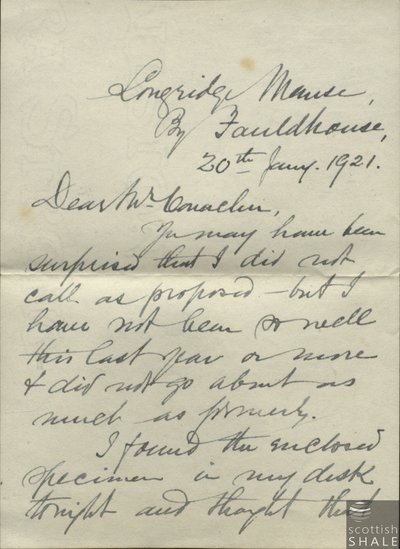 Longridge Manse,
By Fauldhouse,
20th Jany. 1921.
Dear Mr Conacher,
You may have been
surprised that I did not
call as proposed – but I
have not been so well
this last year or more
& did not go about as
much as formerly.
I found the enclosed
specimen in my desk
tonight and thought that
scottish
SHALE